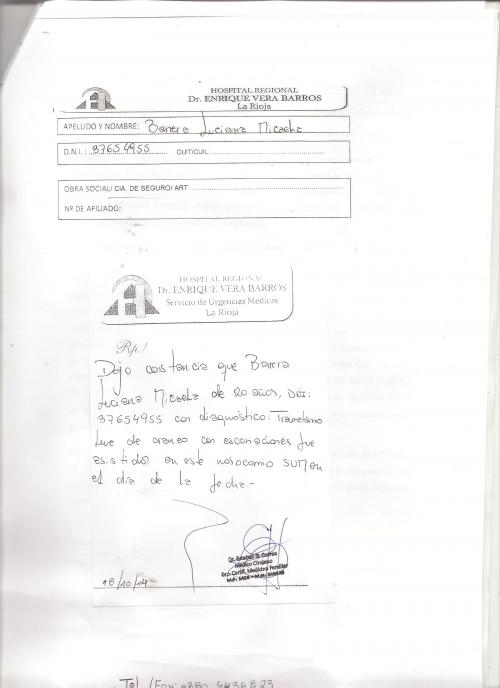 HOSPITAL REGIONAL
Dr. ENRIQUE VERA BARROS
La Rioja
APELLIDO Y NOMBRE: Barrera Luciana Micaela
D.N.I.: 37654955 CUIT/CUIL:
OBRA SOCIAL/ CIA. DE SEGURO/ ART:
Nº DE AFILIADO:
HOSPITAL REGIONAL
Dr. ENRIQUE VERA BARROS
Servicio de Urgencias Medicas
La Rioja
Rp./
Dejo constancia que Barrera
Luciana Micaela de 20 años, DNI:
37654955 con diagnóstico: Traumatismo
leve de craneo con escoriaciones fue
asistido en este nosocomio
el día de la fecha.-
Dr. Esteban
Médico Cirujano
Esp. Certif. Medicina Familiar
18/10/14
Tel/Fax: 0380 4436823